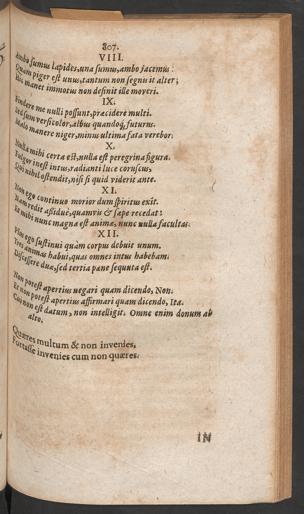 807.
VIII.
Ambo sumus lapides, una sumus, ambo jacemus:
Quam piger est unus, tantum non segnis it alter;
Hic manet immotus non desinit ille moveri.
IX.
Findere me nulli possunt, præcidere multi.
Sed sum versicolor, albus quandoq; futurus.
Malo manere niger, minus ultima fata verebor.
X.
Nulla mihi certa est, nulla est peregrina figura.
Fulgor inest intus, radianti luce coruscus,
Qui nihil ostendit, nisi si quid viderit ante.
XI.
Non ego continuo morior dum spiritus exit.
Nam redit assiduè, quamvis & sæpe recedat:
Et mihi nunc magna est animæ, nunc nulla facultas.
XII.
Plus ego sustinui quàm corpus debuit unum.
Tres animas habui, quas omnes intus habebam:
Discessere duæ, sed tertia pane sequuta est.
Non potest apertius uegari quam dicendo, Non:
Et non potest apertius affirmari quam dicendo, Ita.
Cui non est datum, non intelligit. Omne enim donum ab
alto.
Quæres multum & non invenies,
Fortasse invenies cum non quæres.
IN